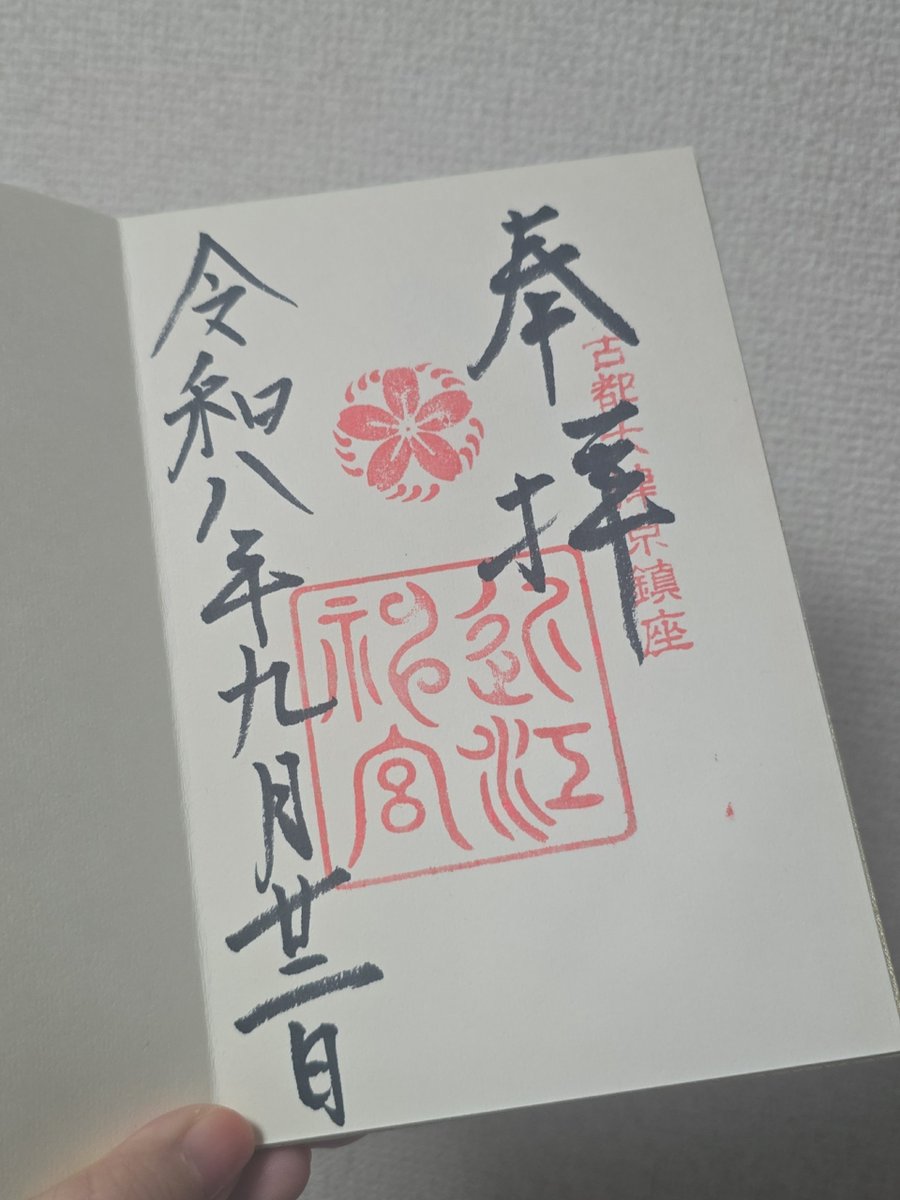 古都大津京鎮座
奉拝
近江
神宮
令和八年九月廿二日